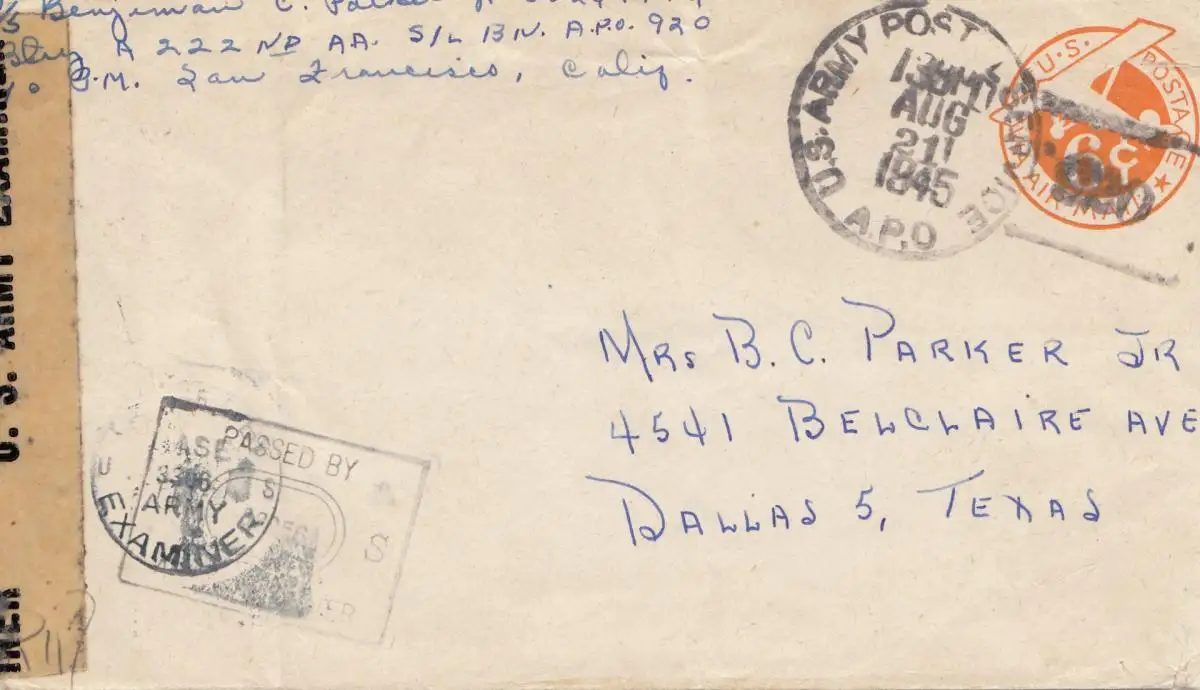 Benjiman C. Parker Jr
Btry A 222 ND AA. S/L BN. A.P.O. 920
P.M. San Francisco, Calif.
U.S. ARMY POSTAL SERVICE
A.P.O
AUG
21
1945
U.S. POSTAGE
6¢
AIR MAIL
MRS B. C. PARKER JR
4541 BELCLAIRE AVE
DALLAS 5, TEXAS
PASSED BY
BASE
ARMY
EXAMINER
S
U. S. ARMY EXAMINER